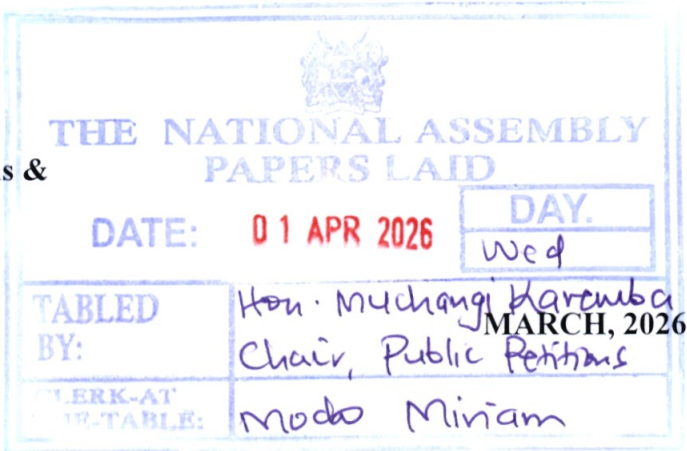 THE NATIONAL ASSEMBLY
s &
PAPERS LAID
DATE: 01 APR 2026
DAY.
Wed
TABLED BY:
Hon. Muchangi Karemba
MARCH, 2026
Chair, Public Petitions
CLERK-AT THE-TABLE:
Modo Miriam